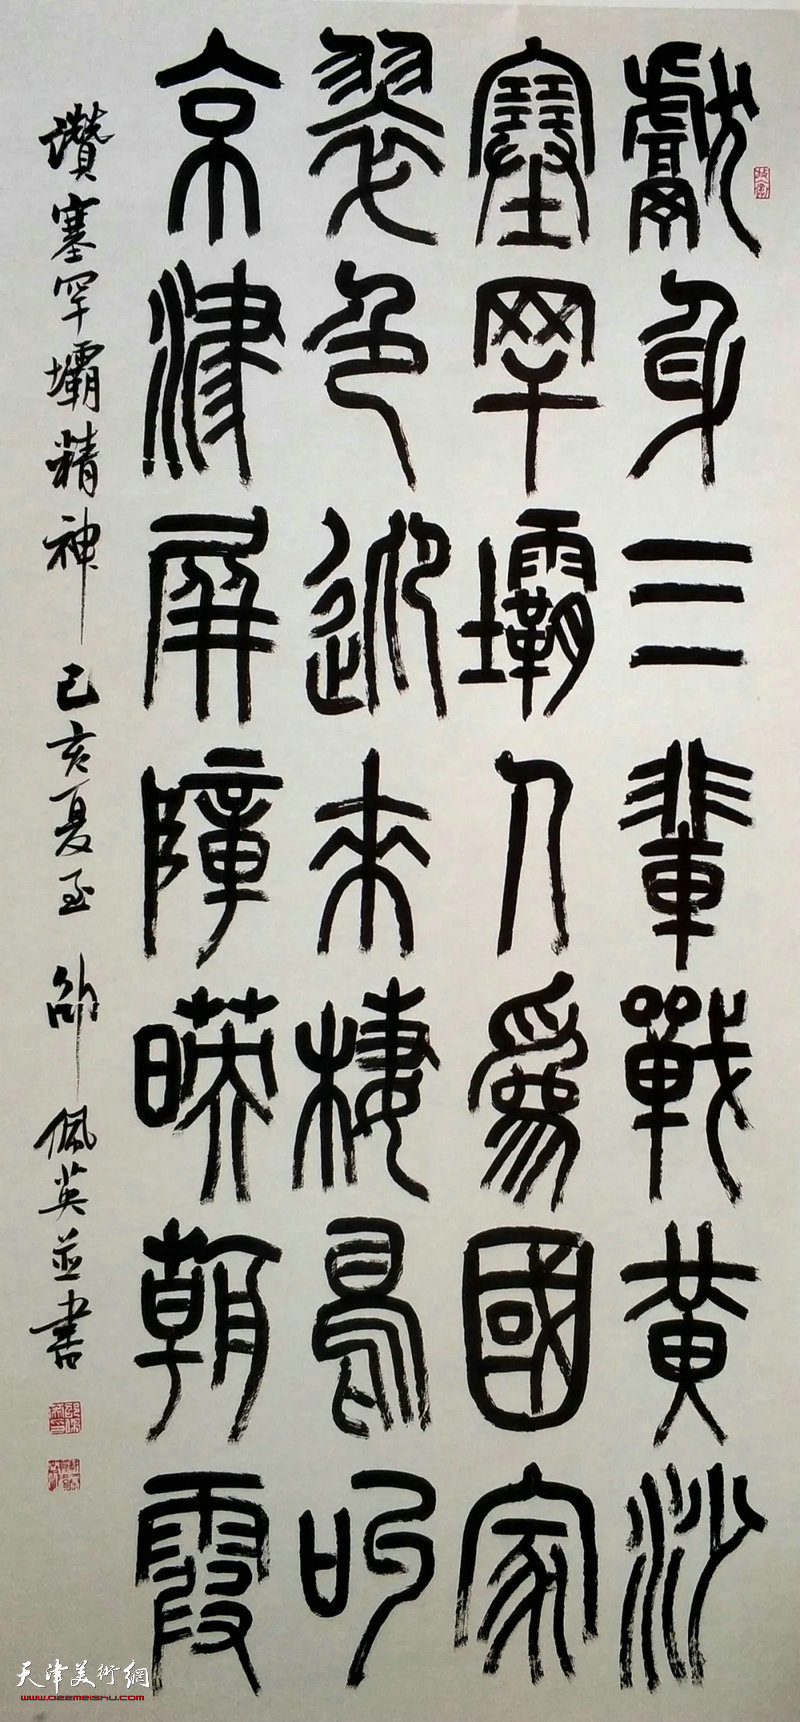 獻身三輩戰黃沙
塞罕壩人爲國家
翠色迎來棲鳥叫
京津屏障暎朝霞
讚塞罕壩精神 己亥夏至 邵佩英並書
天津美術網
www.022meishu.com